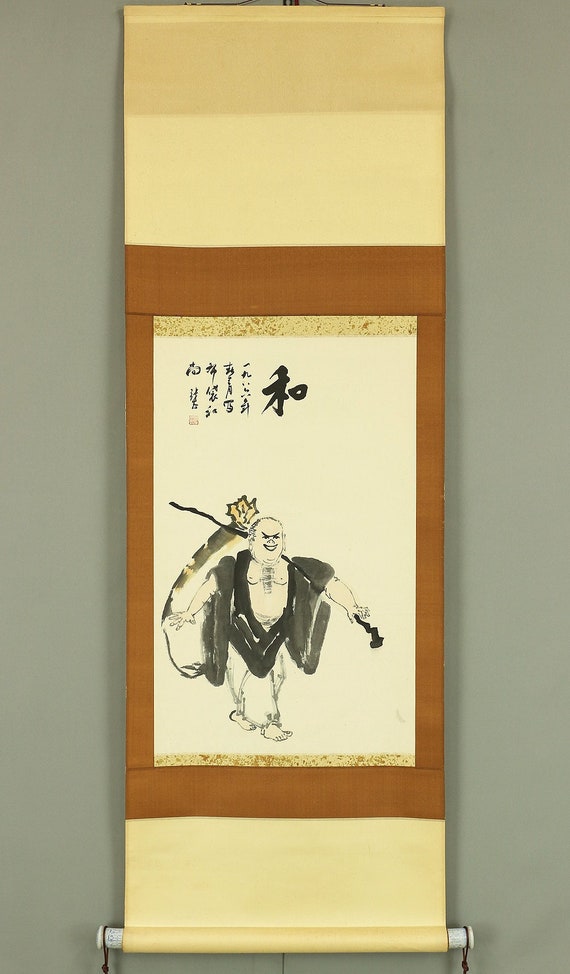 和
一九八六年
春三月写
布袋和
尚